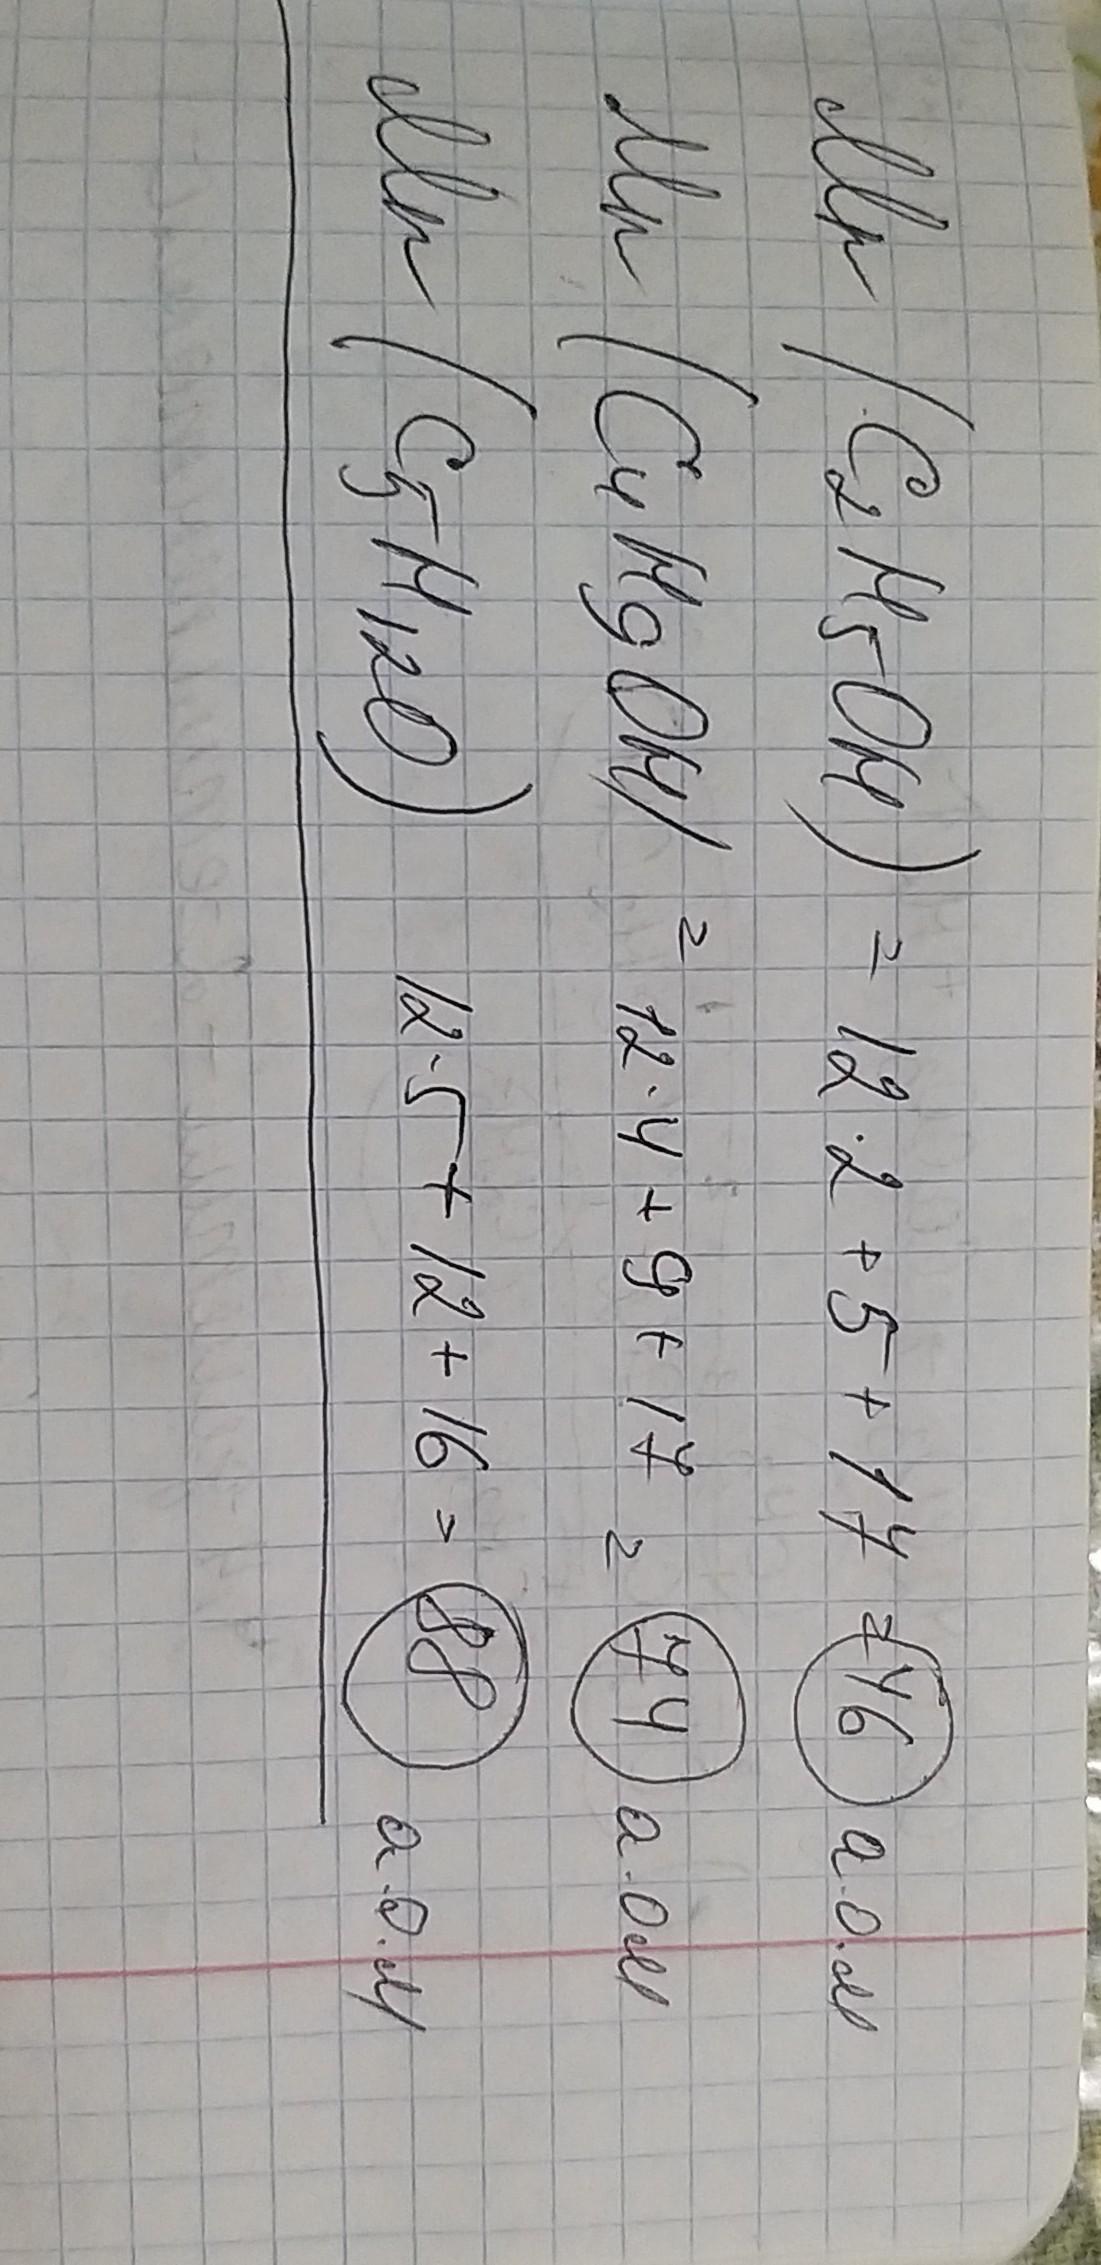 Mr (C₂H₅OH) = 12·2 + 5 + 17 = 46 а.о.м
Mr (C₄H₉OH) = 12·4 + 9 + 17 = 74 а.о.м
Mr (C₅H₁₂O) 12·5 + 12 + 16 = 88 а.о.м